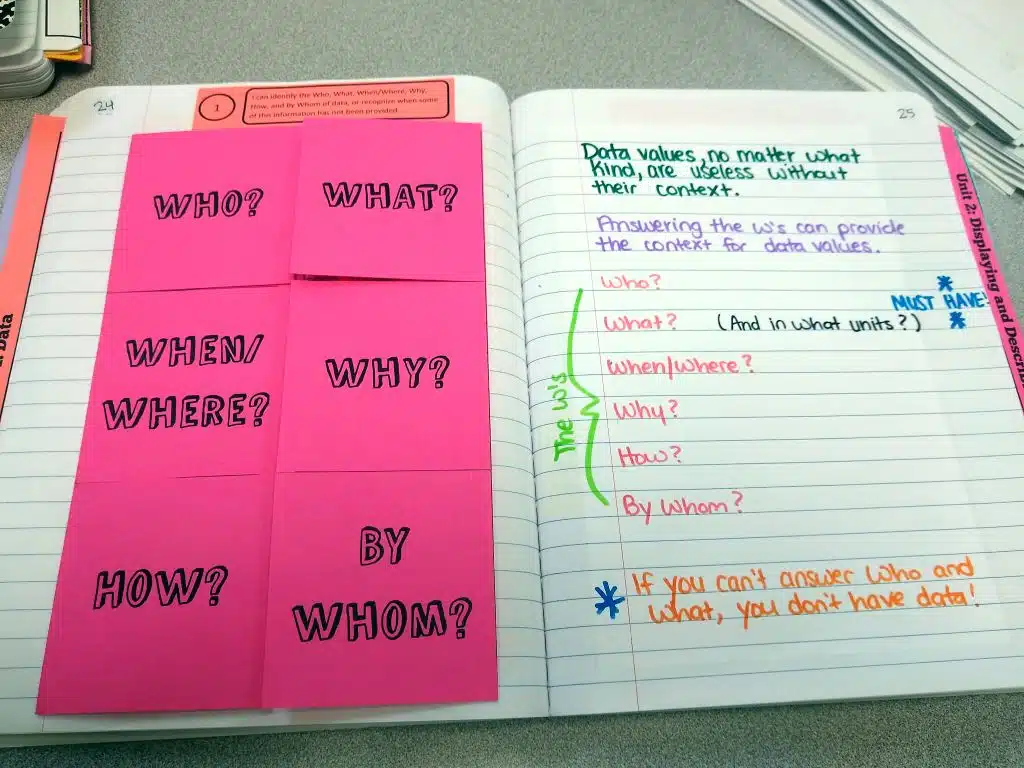 24
1
I can identify the Who, What, When/Where, Why,
How, and By Whom of data, or recognize when some
of this information has not been provided.
WHO?
WHAT?
WHEN/
WHERE?
WHY?
HOW?
BY
WHOM?
Data
25
Data values, no matter what
kind, are useless without
their context.
Answering the W's can provide
the context for data values.
The W's
Who?
What? (And in what units?)
* MUST HAVE! *
When/Where?
Why?
How?
By Whom?
* If you can't answer Who and
What, you don't have data!
Unit 2: Displaying and